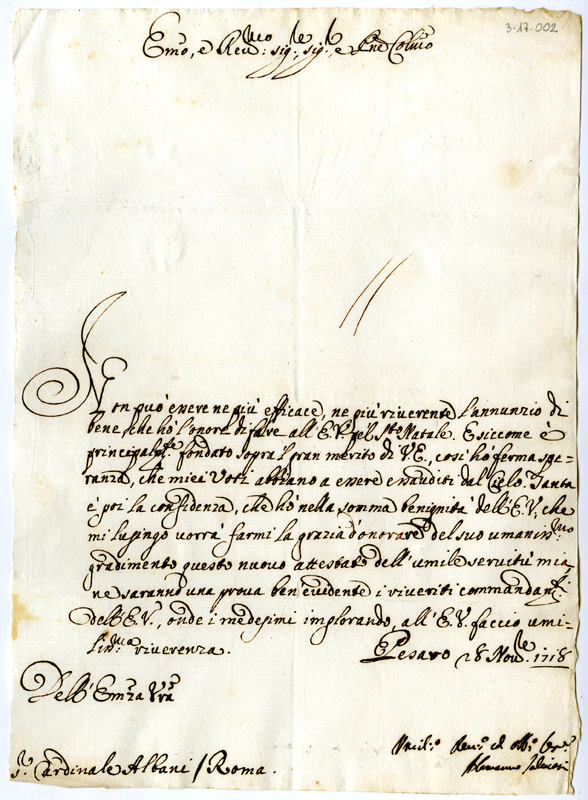 3-17-002
Emo, e Reu.mo: sig.re sig.re e Pne Colmo
Non può essere ne più efficace, ne più riuerente l'annunzio di
bene, che hò l'onore di fare all'E.V. pel S.to Natale. E siccome è
principalm.te fondato sopra l gran merito di VE., così hò ferma spe-
ranza, che miei Voti abbiano a essere esauditi dal Cielo. Tanta
è poi la confidenza, che hò nella somma benignità dell'E.V., che
mi lusingo vorrà farmi la grazia d'onorare del suo umaniss.mo
gradimento questo nuovo attestato dell'umile seruitù mia
ne saranno una prova ben evidente i riveriti commandam.ti
dell'E.V., onde i medesimi implorando, all'E.V. faccio umi-
liss.ma riverenza.
Pesaro 28 Nou.re 1718
Dell'Emza Vra
Umil.o Deu.o ed Obb.o Ser.re
Alamanno Salviati
S.r Cardinale Albani / Roma.